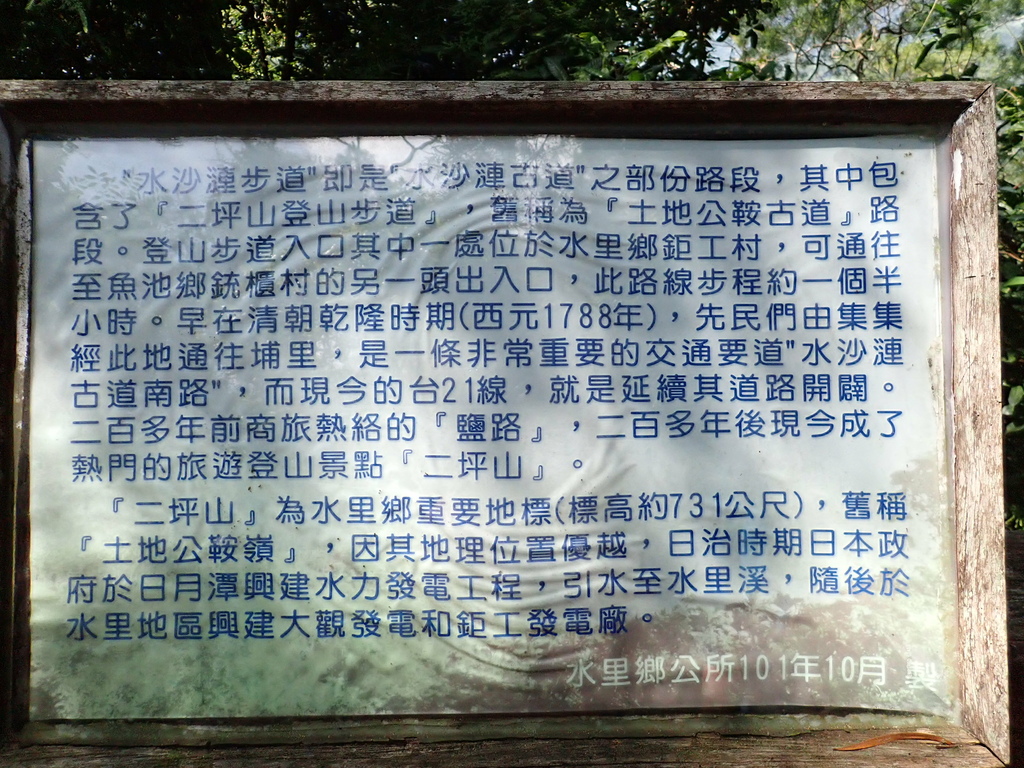 "水沙漣步道"即是"水沙漣古道"之部份路段，其中包
含了『二坪山登山步道』，舊稱為『土地公鞍古道』路
段。登山步道入口其中一處位於水里鄉鉅工村，可通往
至魚池鄉銃櫃村的另一頭出入口，此路線步程約一個半
小時。早在清朝乾隆時期(西元1788年)，先民們由集集
經此地通往埔里，是一條非常重要的交通要道"水沙漣
古道南路"，而現今的台21線，就是延續其道路開闢。
二百多年前商旅熱絡的『鹽路』，二百多年後現今成了
熱門的旅遊登山景點『二坪山』。
『二坪山』為水里鄉重要地標(標高約731公尺)，舊稱
『土地公鞍嶺』，因其地理位置優越，日治時期日本政
府於日月潭興建水力發電工程，引水至水里溪，隨後於
水里地區興建大觀發電和鉅工發電廠。
水里鄉公所101年10月 製